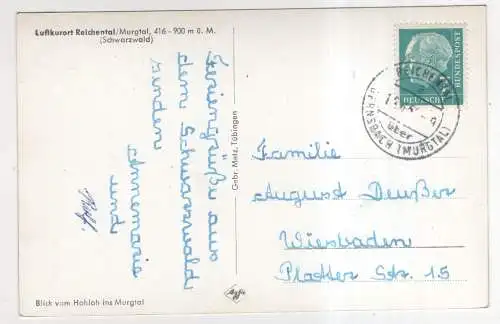 Luftkurort Reichental/Murgtal, 416-900 m ü. M.
(Schwarzwald)
Feriengrüße aus
dem Schwarzwald
senden
und
Gebr. Metz, Tübingen
Familie
August Deußer
Wiesbaden
Platter Str. 15
DEUTSCHE
BUNDESPOST
REICHENTAL
über
GERNSBACH (MURGTAL)
Agfa
Blick vom Hohloh ins Murgtal